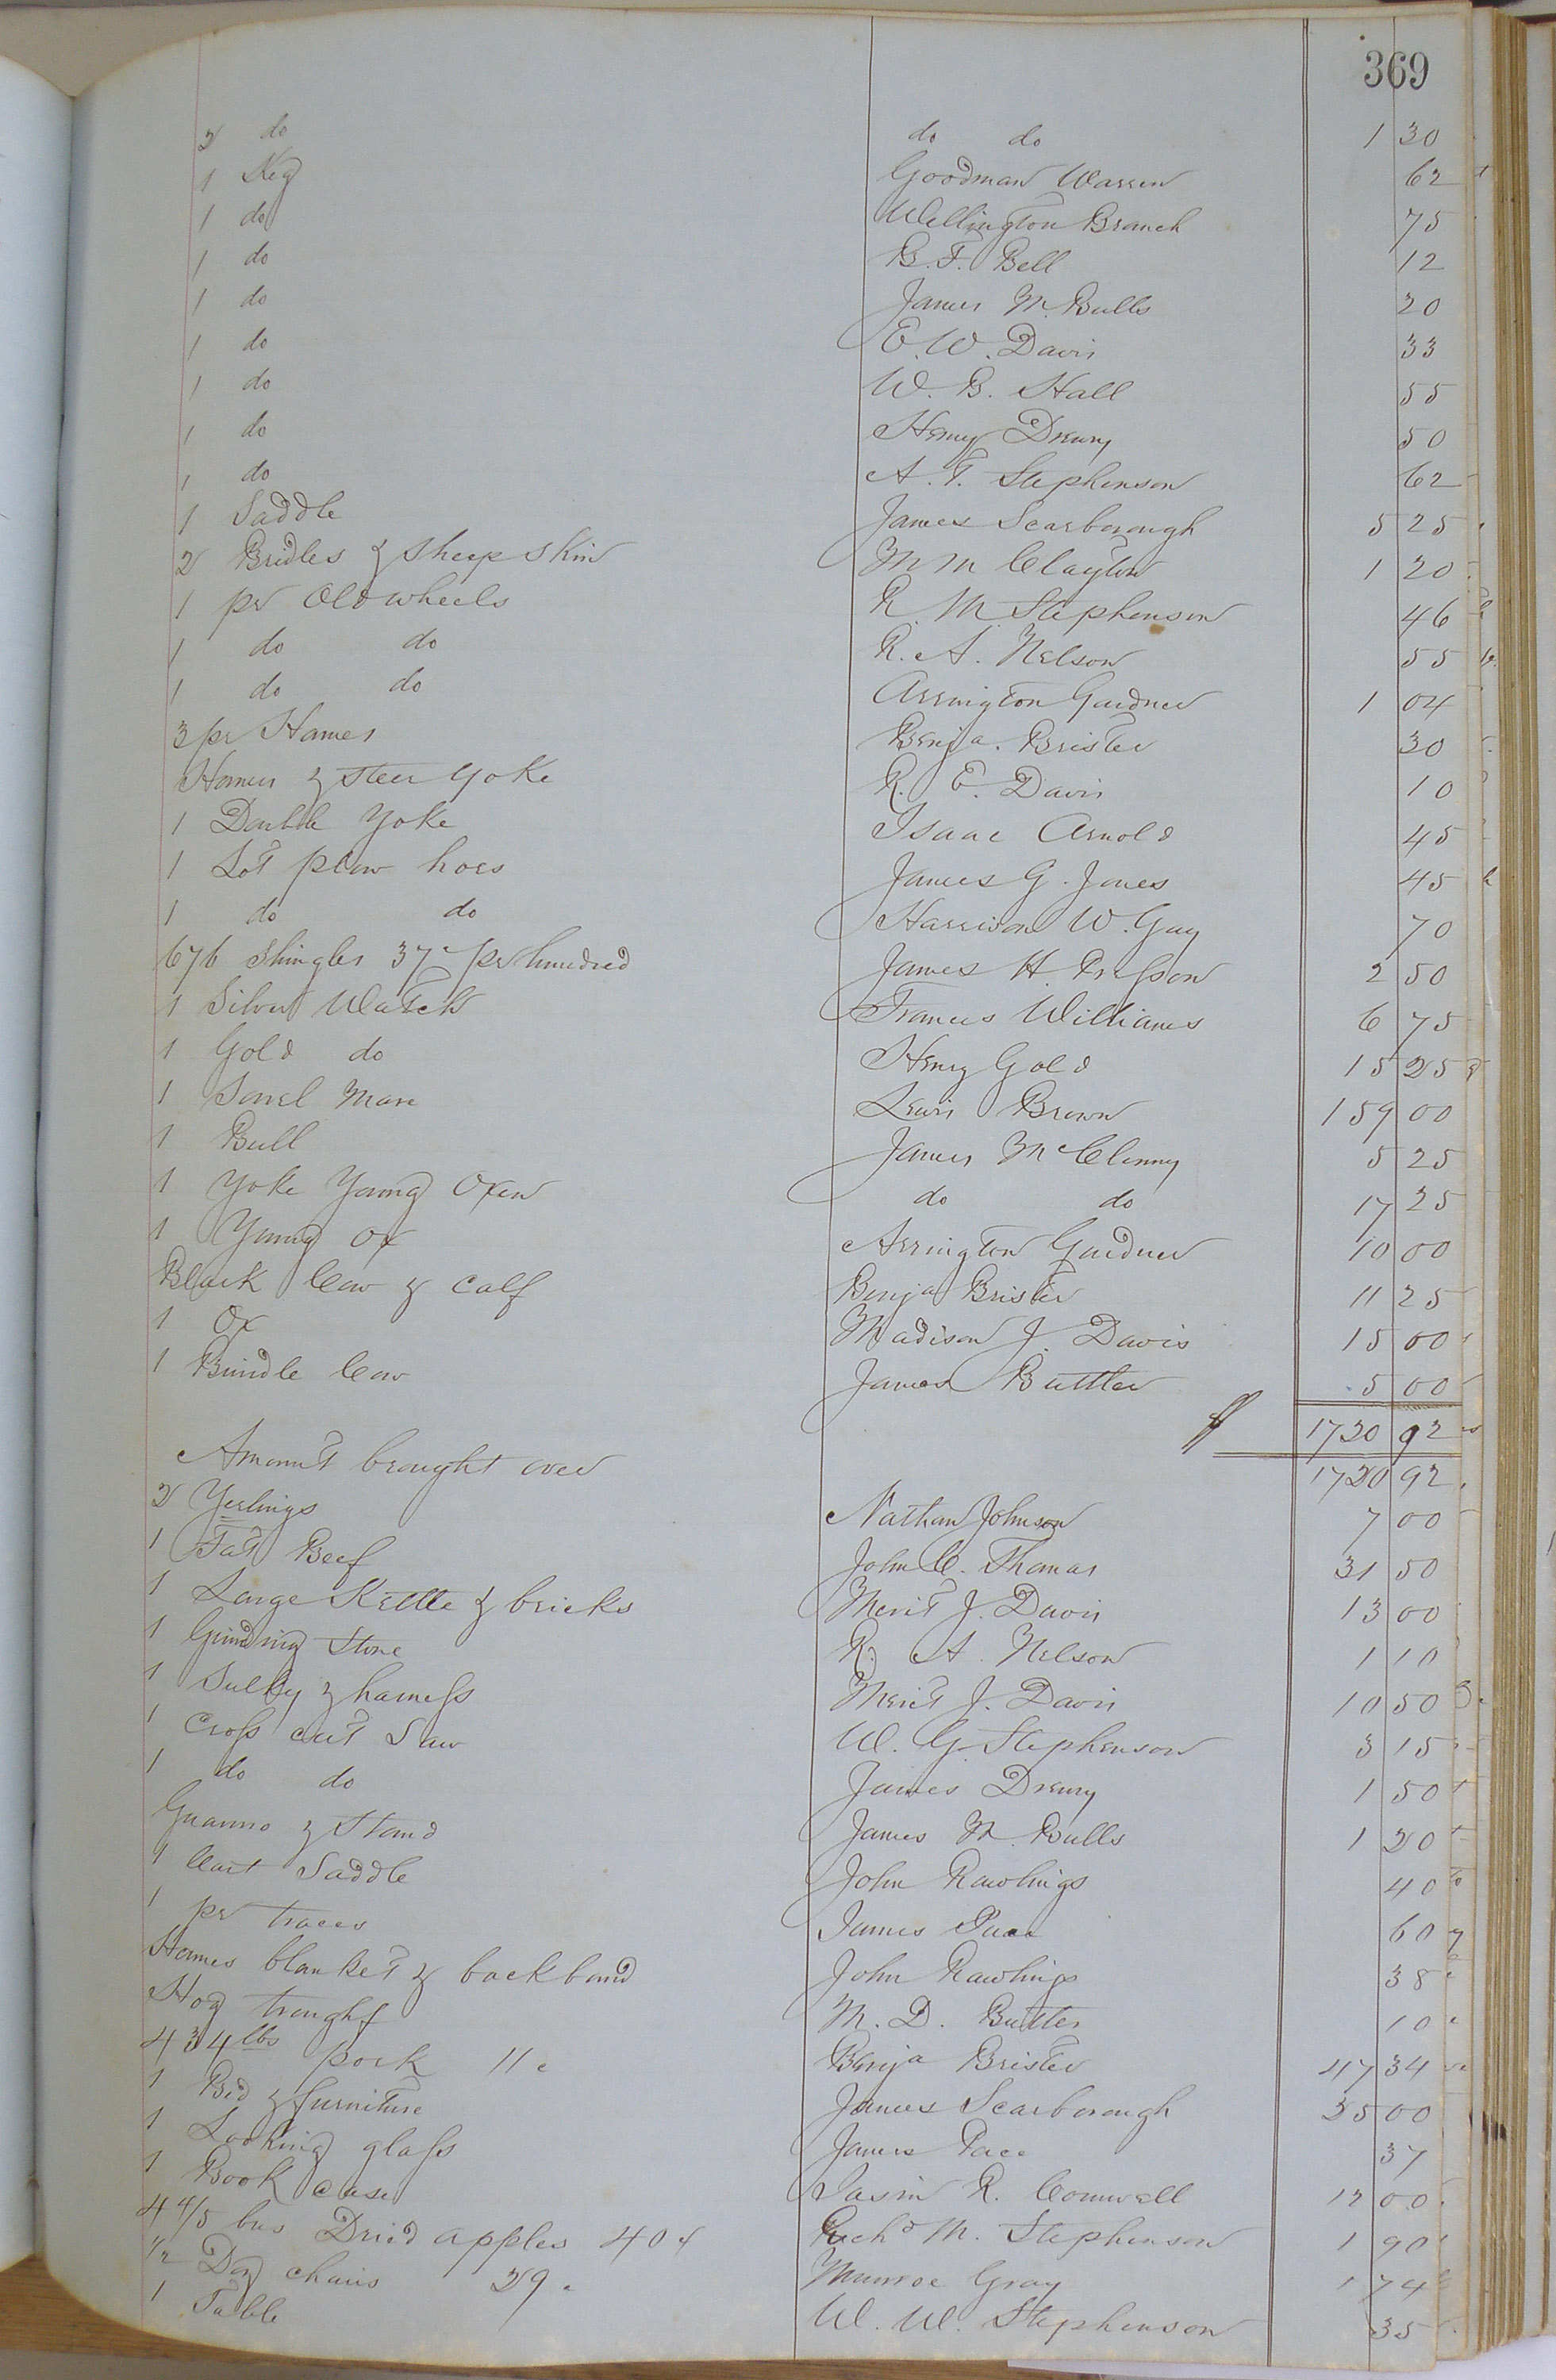 369
2 do do do 1 30
1 Keg Goodman Warren 62
1 do Wellington Branch 75
1 do B. F. Bell 12
1 do James M. Bulls 20
1 do E. W. Davis 33
1 do W. B. Hall 55
1 do Henry Drewry 50
1 do A. T. Stephenson 62
1 Saddle James Scarborough 5 25
2 Bridles & Sheep Skin M M Clayton 1 20
1 pr Old wheels R. M. Stephenson 46
1 do do R. A. Nelson 55
1 do do Arrington Gardner 1 04
3 pr Hames Benja. Brister 30
Hames & Steer Yoke R. E. Davis 10
1 Double Yoke Isaac Arnold 45
1 Lot plow hoes James G. Jones 45
1 do do Harrison W. Guy 70
676 Shingles 37 pr hundred James H. 2 50
1 Silver Watch Frances Williams 6 75
1 Gold do Henry Gold 15 25
1 Sorrel Mare Lewis Brown 159 00
1 Bull James McClenny 5 25
1 Yoke Young Oxen do do 17 25
1 Young Ox Arrington Gardner 10 00
Black Cow & Calf Benja Brister 11 25
1 Ox Madison J. Davis 15 00
1 Brindle Cow James Buttler 5 00
1720 92
Amount brought over 1720 92
2 Yerlings Nathan Johnson 7 00
1 Fat Beef John C. Thomas 31 50
1 Large Kettle & bricks Merit J. Davis 13 00
1 Grinding Stone R. A. Nelson 1 10
1 Sulky & harness Merit J. Davis 10 50
1 Cross cut Saw W. G. Stephenson 3 15
1 do do James Drewry 1 50
Guanno & Stand James M. Bulls 1 20
1 Cart Saddle John Rawlings 40
1 pr traces James Pace 60
Hames blanket & backband John Rawlings 38
Hog troughs M. D. Butler 10
434 lbs pork 11c Benja Brister 47 34
1 Bed & furniture James Scarborough 35 00
1 Looking glass James Pace 37
1 Book Case R. Cornwell 12 00
4 4/5 bus Dried apples 40c Richd M. Stephenson 1 90
1/2 Doz chairs 29c Munroe Gray 1 74
1 Table W. W. Stephenson 35